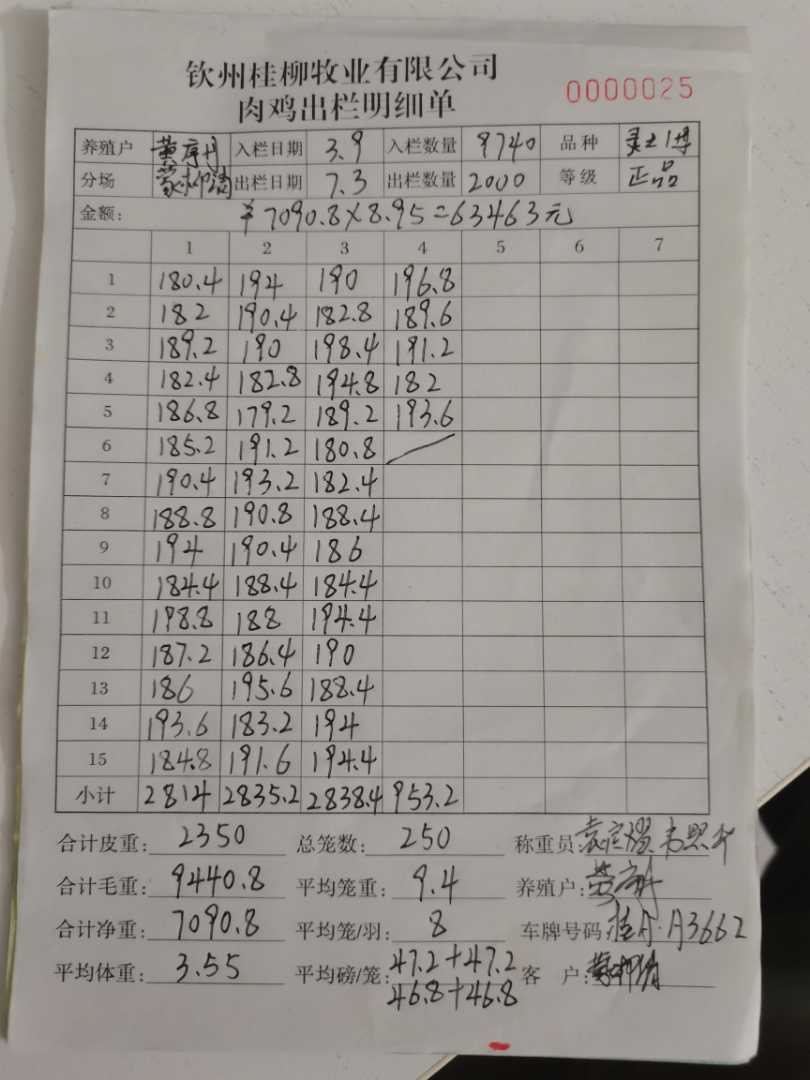 钦州桂柳牧业有限公司
肉鸡出栏明细单 0000025
养殖户 入栏日期 3.9 入栏数量 9740 品种
分场 出栏日期 7.3 出栏数量 2000 等级 正品
金额: ¥7090.8×8.95=63463元
1 2 3 4 5 6 7
1 180.4 194 190 196.8
2 182 190.4 182.8 189.6
3 189.2 190 198.4 191.2
4 182.4 182.8 194.8 182
5 186.8 179.2 189.2 193.6
6 185.2 191.2 180.8
7 190.4 193.2 182.4
8 188.8 190.8 188.4
9 194 190.4 186
10 184.4 188.4 184.4
11 198.8 188 194.4
12 187.2 186.4 190
13 186 195.6 188.4
14 193.6 183.2 194
15 184.8 191.6 194.4
小计 2814 2835.2 2838.4 953.2
合计皮重: 2350 总笼数: 250 称重员:
合计毛重: 9440.8 平均笼重: 9.4 养殖户:
合计净重: 7090.8 平均笼/羽: 8 车牌号码:
平均体重: 3.55 平均磅/笼: 47.2+47.2 客 户:
46.8+46.8